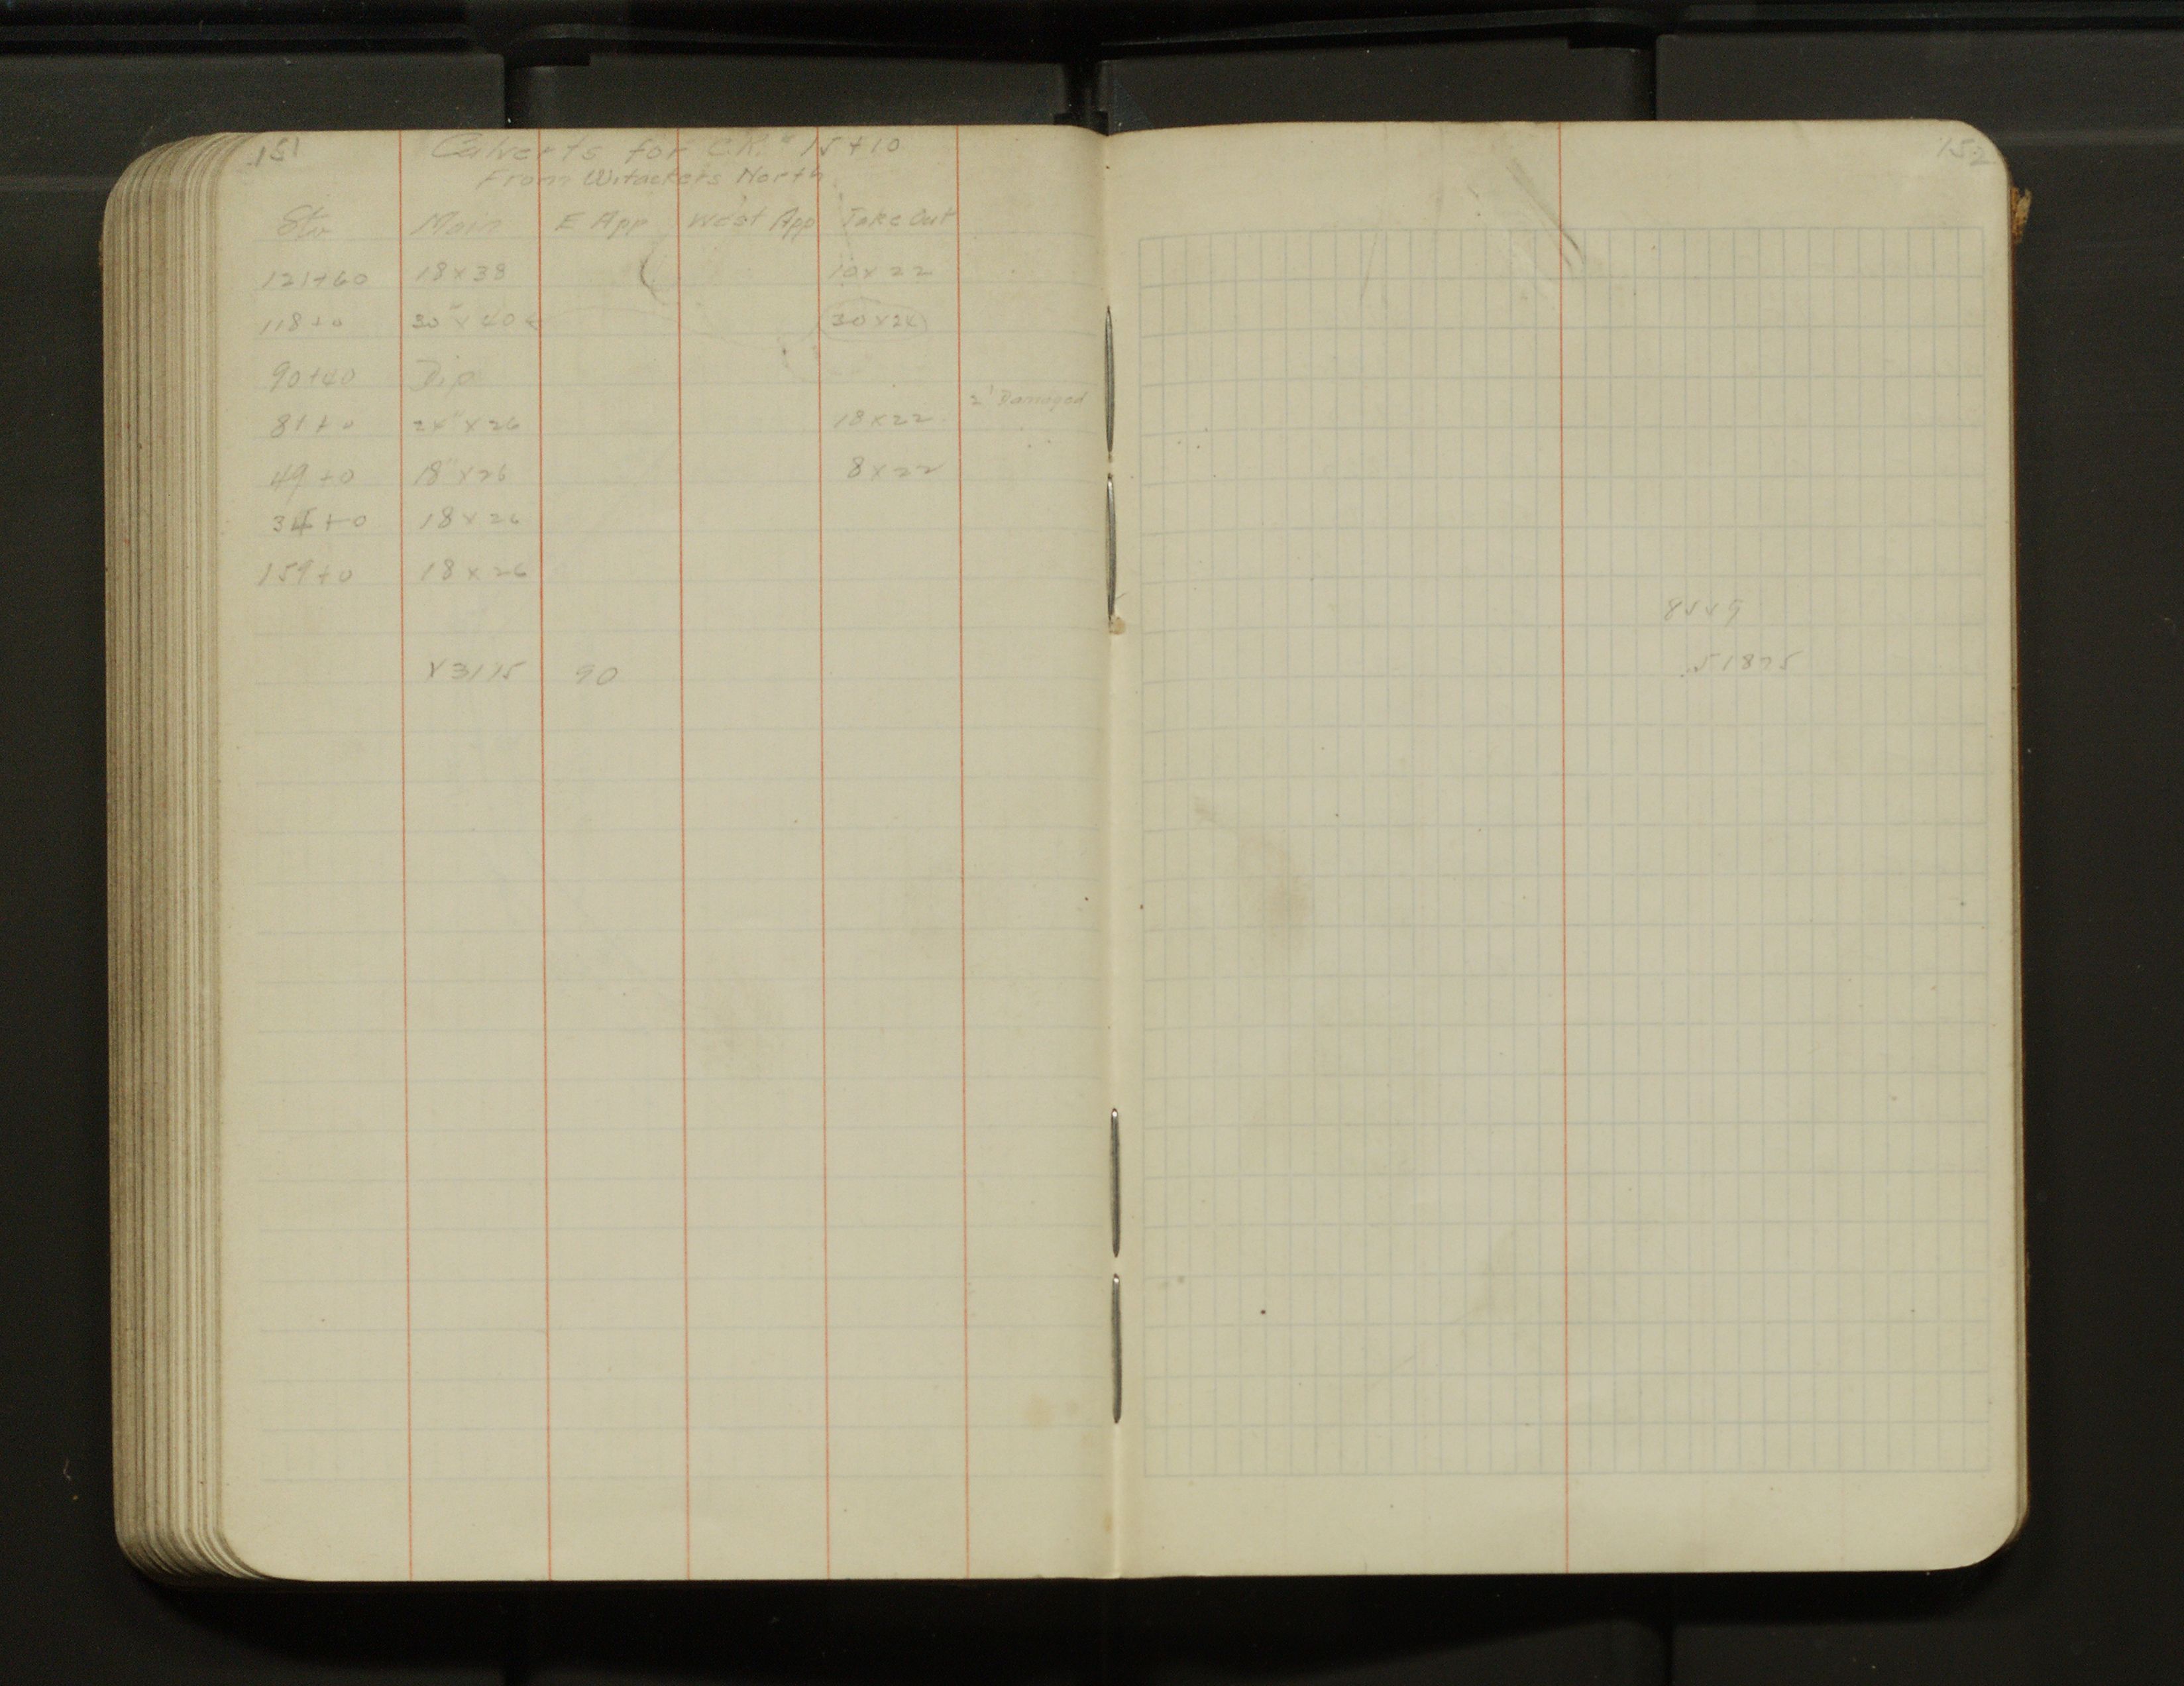 151
Culverts for C.K. " 15+10
From Witackers North
Sta Main E App West App Take Out
121+60 18x38 10x22
118+0 30"x40 30x24
90+40 Dip
2' Damaged
81+0 24"x26 18x22
49+0 18"x26 8x22
34+0 18x26
159+0 18x26
x3175 90
152
51875